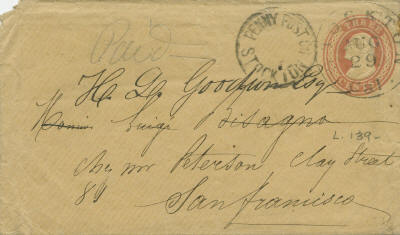 PENNY POST CO
STOCKTON
STOCKTON
AUG
29
THREE
Paid
H. D. Goodwin Esq
Luigi Bisagno
L. 139-
Peterson Clay Street
84
San francisco